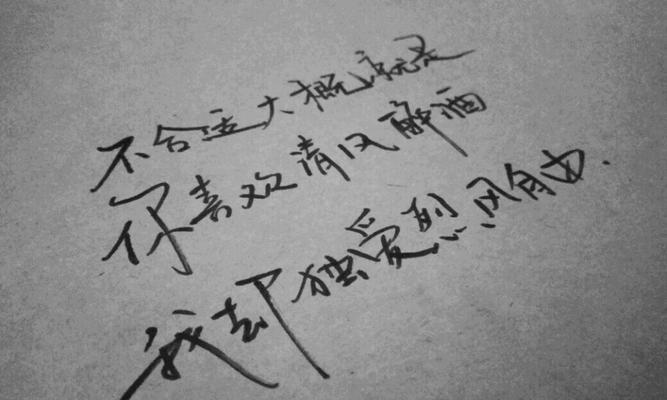 不合适大概就是
你喜欢清风解酒
我却独爱烈风自由.